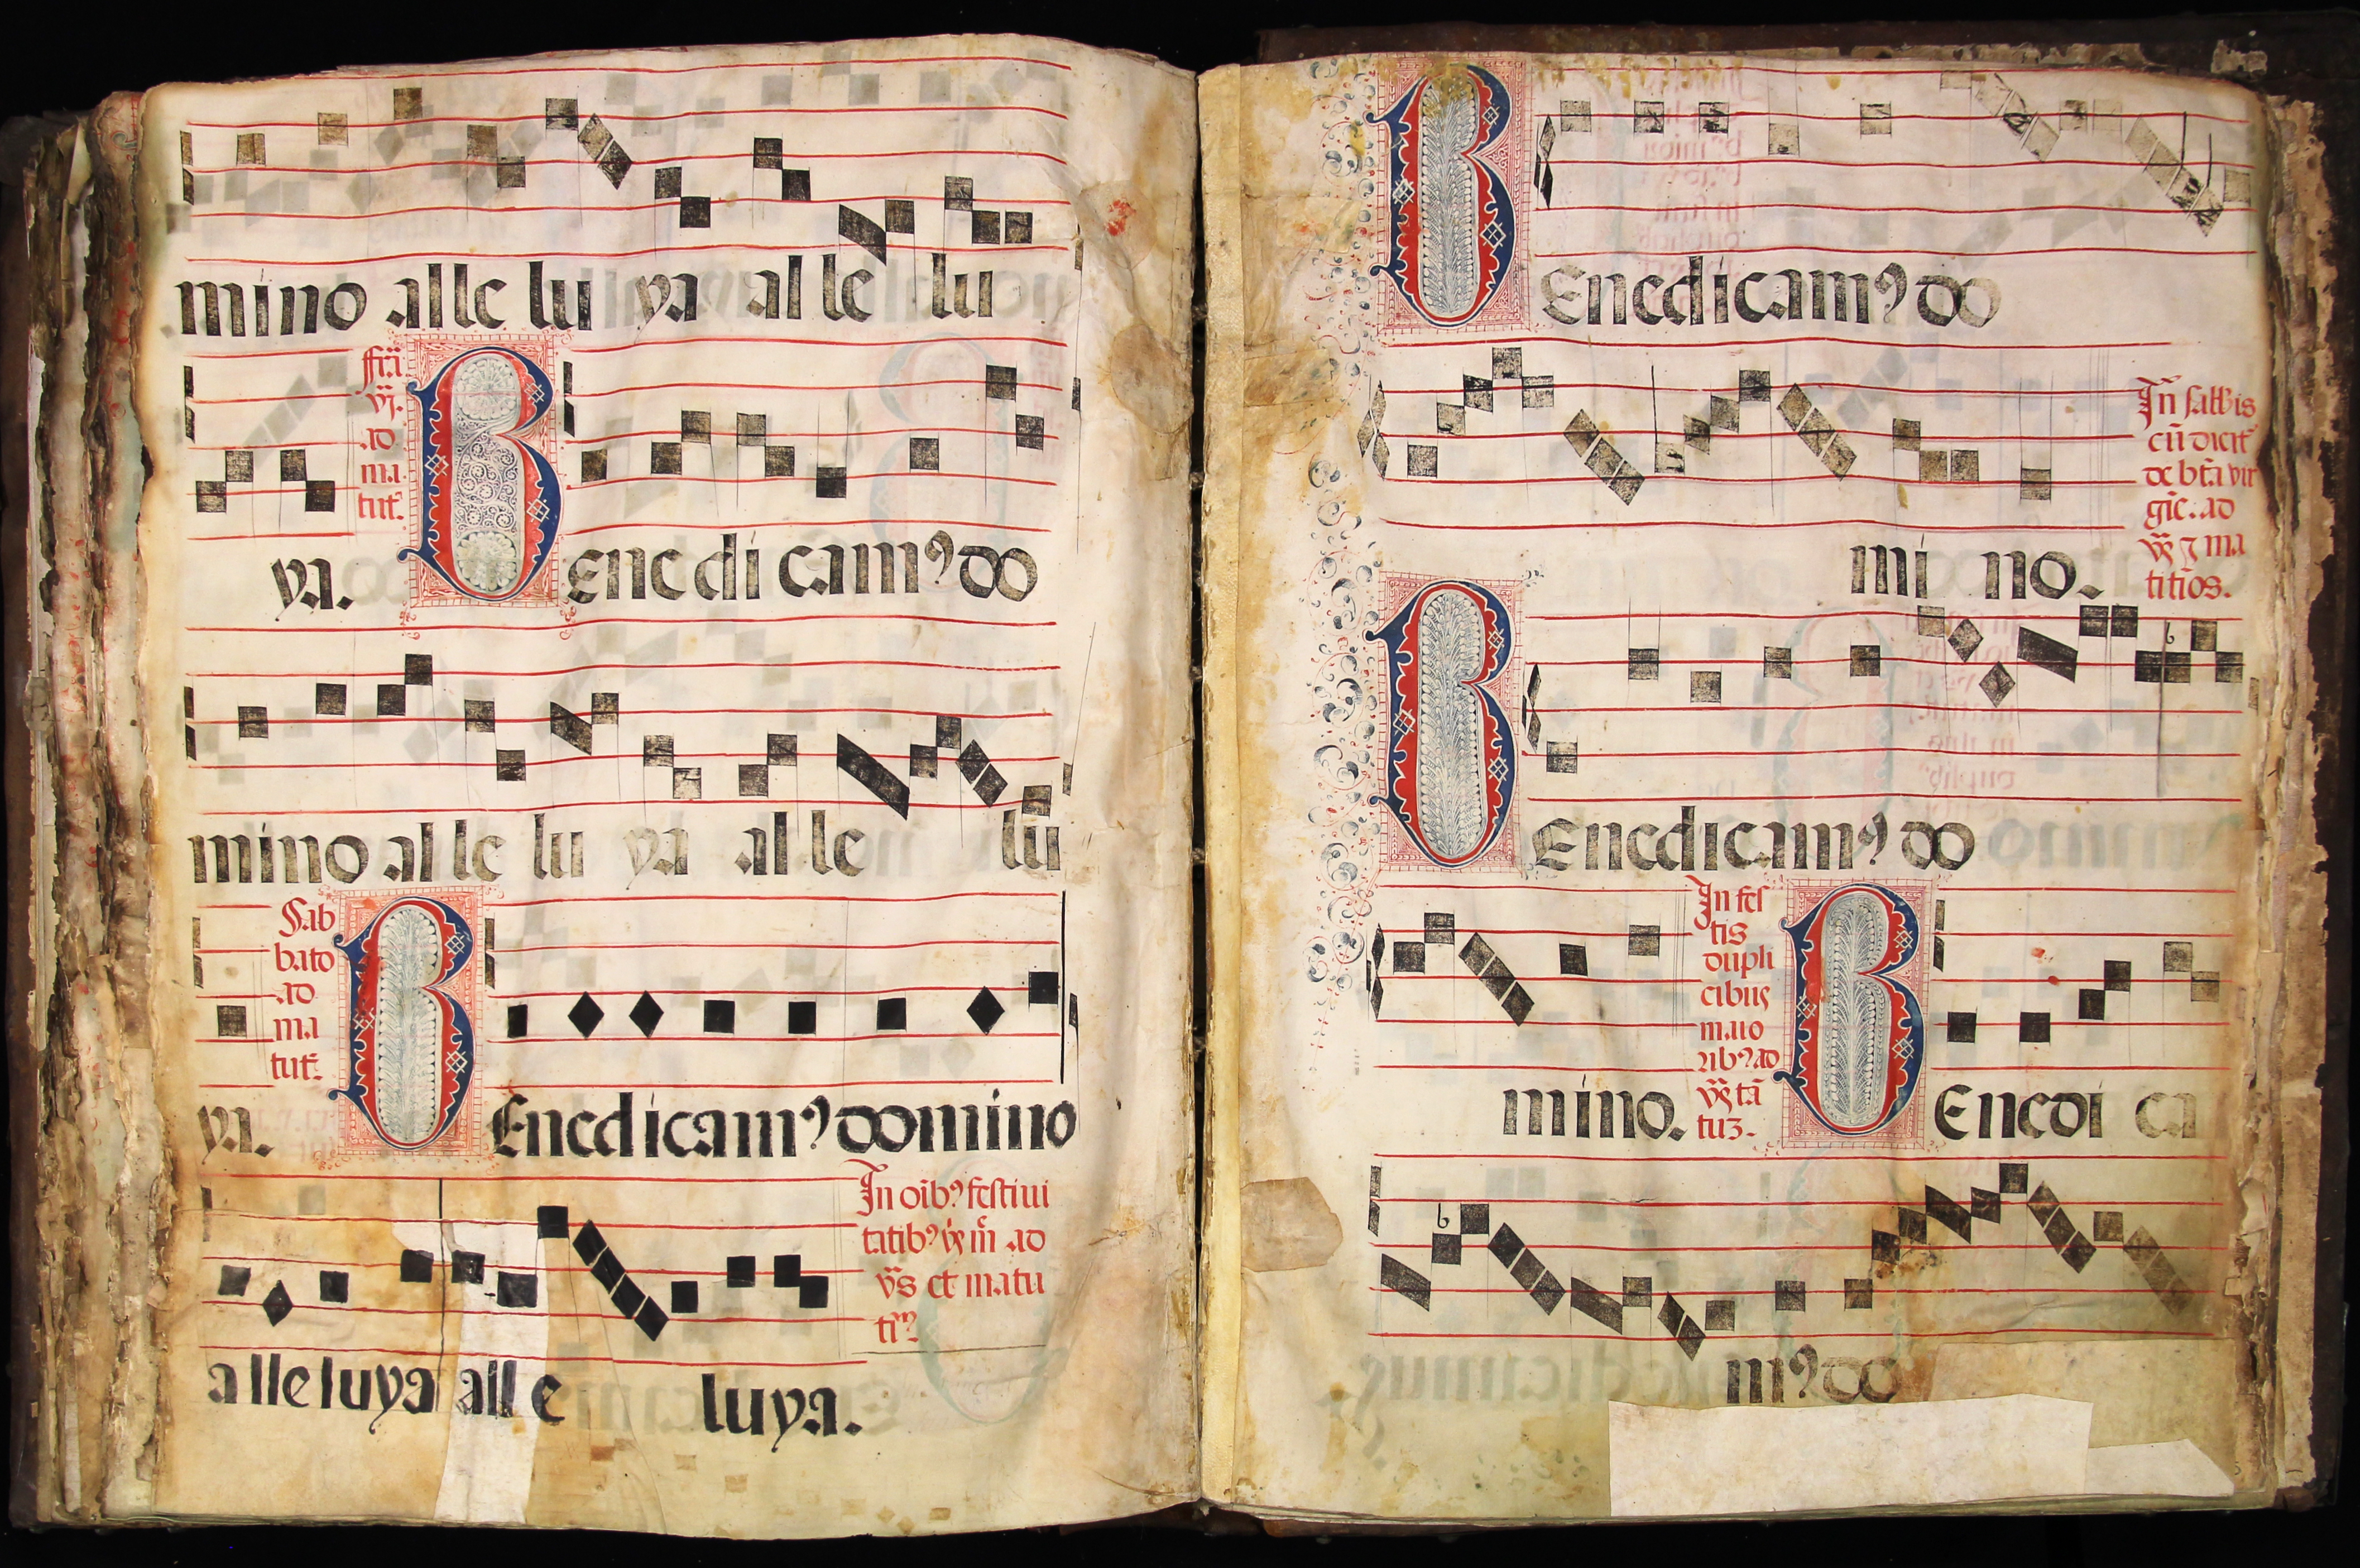 mino alle lu ya al le lu
ffīa
vj.
ad
ma
tut̄.
ya. BEne di cam⁹ do
mino al le lu ya al le lu
Sab
bato
ad
ma
tut̄.
ya. BEnedicam⁹ domino
In oīb⁹ festiui
tatib⁹ ad
et matu
alleluya alle luya.
BEnedicam⁹ do
In sabb̄is
cū dicit̄
de bt̄a vir
gīe. ad
⁊ ma
titīos.
mi no.
BEnedicam⁹ do
In fes
tis
dupli
cibus
maio
rib⁹ ad
tā
tuꝫ.
mino. BEnedi ca
m⁹ do